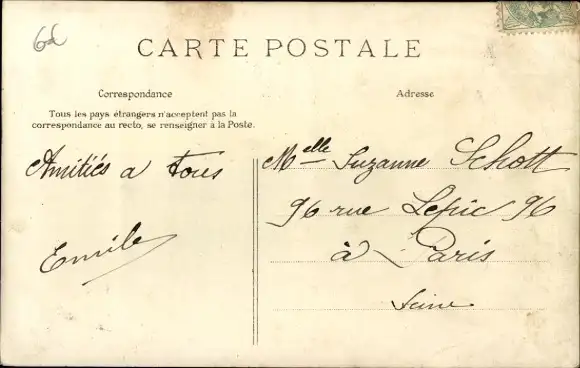 6d
CARTE POSTALE
Correspondance
Tous les pays étrangers n'acceptent pas la
correspondance au recto, se renseigner à la Poste.
Adresse
Amitiés a tous
Emile
Melle Suzanne Schott
96 rue Lepic 96
à Paris
Seine